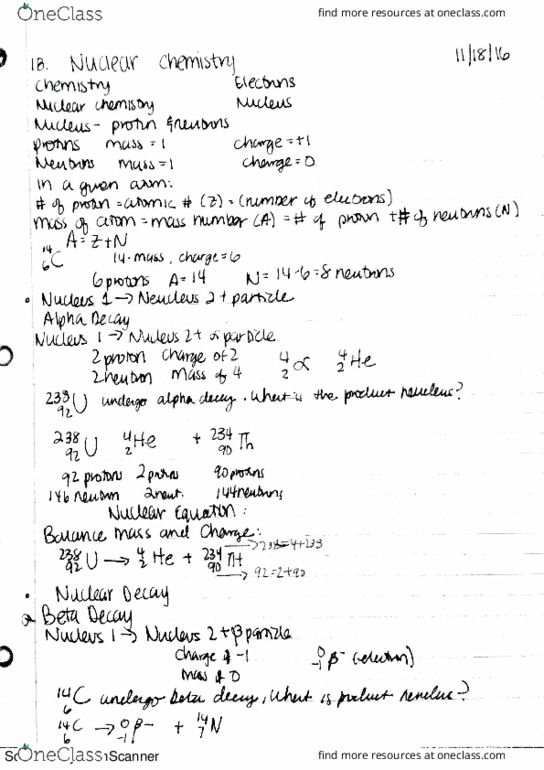 OneClass find more resources at oneclass.com
18. Nuclear Chemistry 11/18/16
Chemistry Electrons
Nuclear chemistry Nucleus
Nucleus - proton & neutrons
protons mass = 1 charge = +1
Neutrons mass = 1 charge = 0
in a given atom:
# of proton = atomic # (Z) = (number of electrons)
mass of atom = mass number (A) = # of proton + # of neutrons (N)
A = Z + N
¹⁴₆C 14 - mass, charge = 6
6 protons A = 14 N = 14 - 6 = 8 neutrons
• Nucleus 1 → Neucleus 2 + particle
Alpha Decay
Nucleus 1 → Nucleus 2 + α particle
2 proton charge of 2 ⁴₂α ⁴₂He
2 neutron mass of 4
²³⁸₉₂U undergo alpha decay. What is the product neucleus?
²³⁸₉₂U ⁴₂He + ²³⁴₉₀Th
92 protons 2 protons 90 protons
146 neutron 2 neut. 144 neutrons
Nuclear Equation:
Balance mass and Charge:
→ 238 = 4 + 238
²³⁸₉₂U → ⁴₂He + ²³⁴₉₀Th
→ 92 = 2 + 90
• Nuclear Decay
Beta Decay
Nucleus 1 → Nucleus 2 + β particle
charge of -1 ⁰₋₁β⁻ (electron)
mass of 0
¹⁴₆C undergo beta decay, What is product neucleus?
¹⁴₆C → ⁰₋₁β⁻ + ¹⁴₇N
OneClass Scanner find more resources at oneclass.com